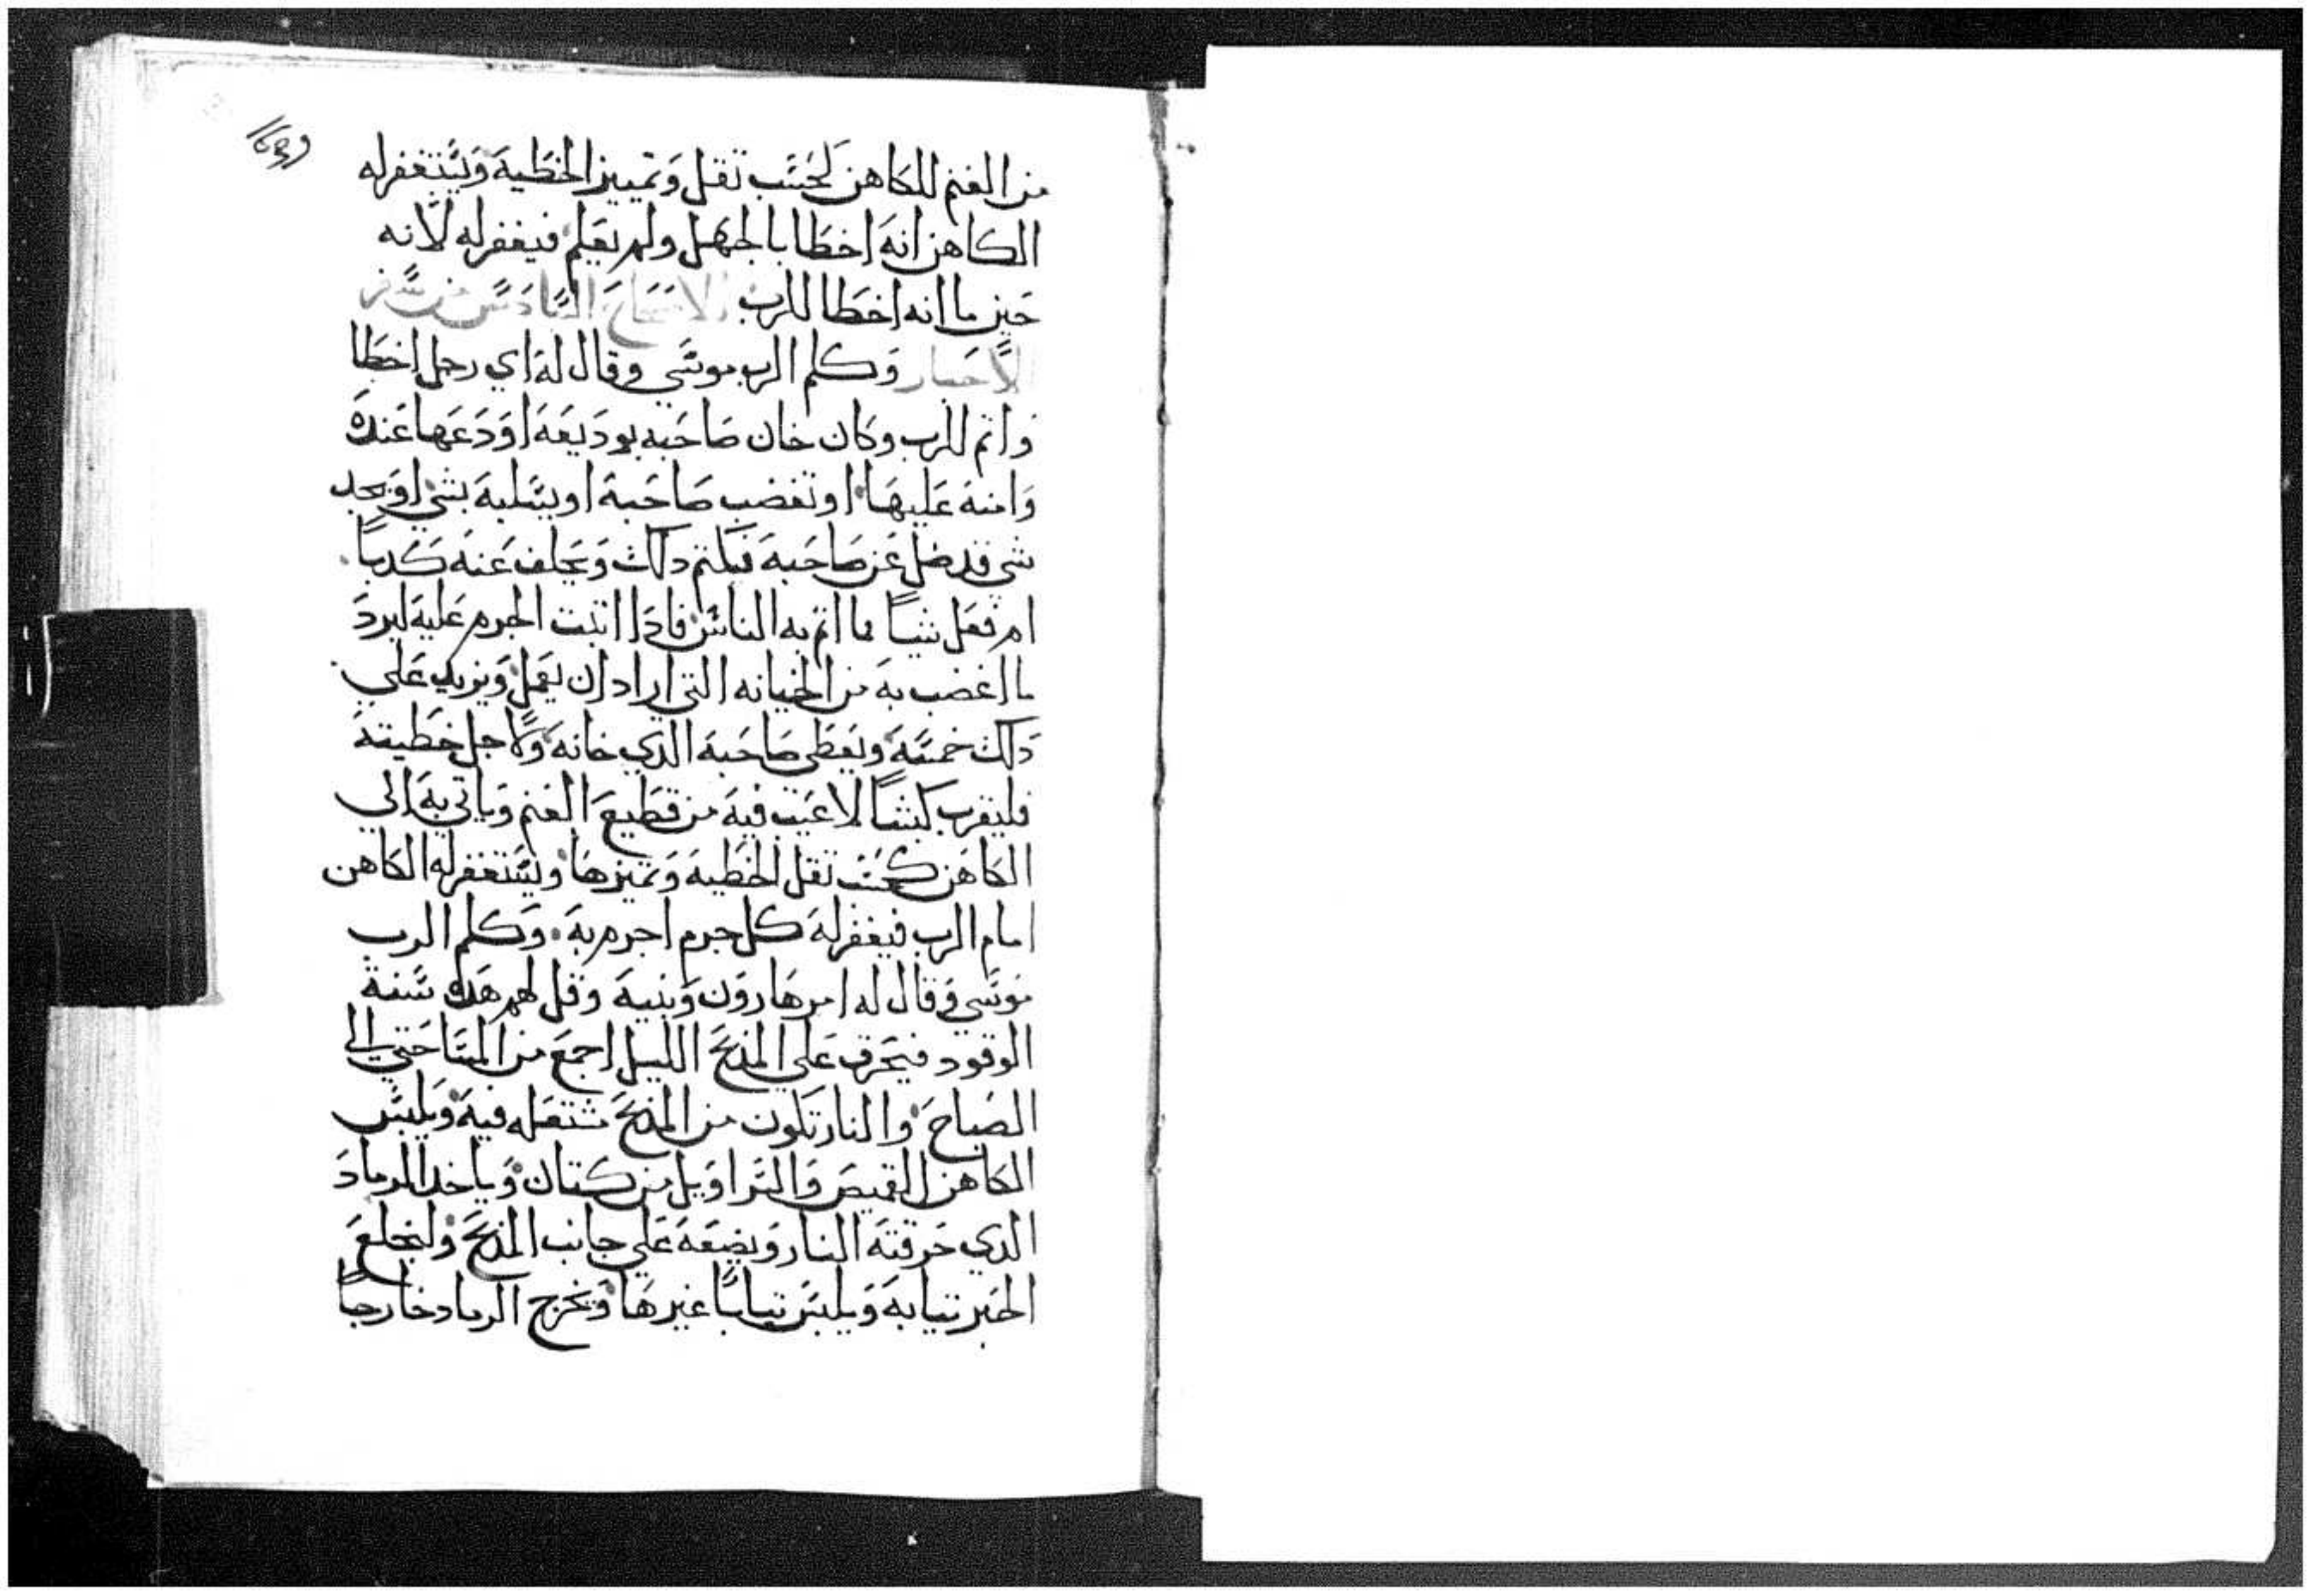 من الغنم للكاهن لحسب تقل وتمييز الخطية ويستغفر له
الكاهن انه اخطا بالجهل ولم يعلم فيغفر له لانه
حين ما انه اخطا للرب الاصحاح السادس من سفر
الاحبار وكلم الرب موسي وقال له اي رجل اخطا
واتم للرب وكان خان صاحبه بوديعه اودعها عنده
وامنه عليها او تغضب صاحبه او يسلبه بشي او يجد
شي قد ضل عن صاحبه فيكتم دلك ويحلف عنه كدبا
ام فعل شيا مما اتم به الناس فادا اتبت الجرم عليه ليرد
ما اغضب به من الخيانه التي اراد ان يعمل ويزيد علي
دلك خمسه ويعطي صاحبه الدي خانه ولاجل خطيته
فليقرب كبشا لا عيب فيه من قطيع الغنم وياتي به الي
الكاهن كحسب تقل الخطية وتميزها ويستغفر له الكاهن
امام الرب فيغفر له كل جرم اجرم به وكلم الرب
موسي وقال له امر هارون وبنيه وقل لهم هده سنة
الوقود فيحرق علي المدبح الليل اجمع من المسا حتي الي
الصباح والنار تكون من المدبح تشتعل فيه ويلبس
الكاهن القميص والسراويل من كتان وياخد الرماد
الدي حرقته النار ويضعه علي جانب المدبح وليخلع
الحبر تيابه ويلبس تيابا غيرها ويخرج الرماد خارجا